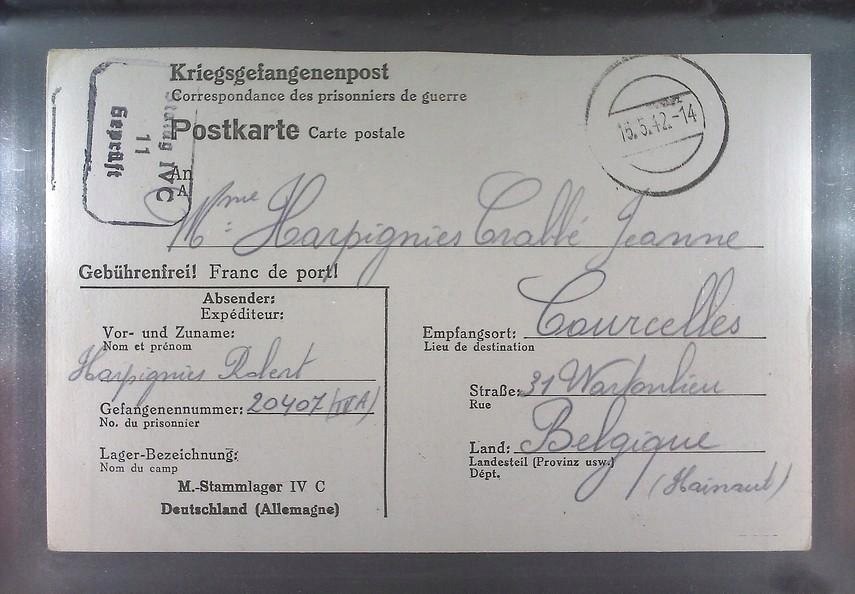 Kriegsgefangenenpost
Correspondance des prisonniers de guerre
Postkarte Carte postale
Stalag IV C
11
Geprüft
16.5.42.-14
An
A
Mme: Harpignies Crabbé Jeanne
Gebührenfrei! Franc de port!
Absender:
Expéditeur:
Vor- und Zuname:
Nom et prénom
Harpignies Robert
Gefangenennummer: 20407 (IV A)
No. du prisonnier
Lager-Bezeichnung:
Nom du camp
M.-Stammlager IV C
Deutschland (Allemagne)
Empfangsort: Courcelles
Lieu de destination
Straße: 31
Rue
Land: Belgique
Landesteil (Provinz usw.)
Dépt.
(Hainaut)